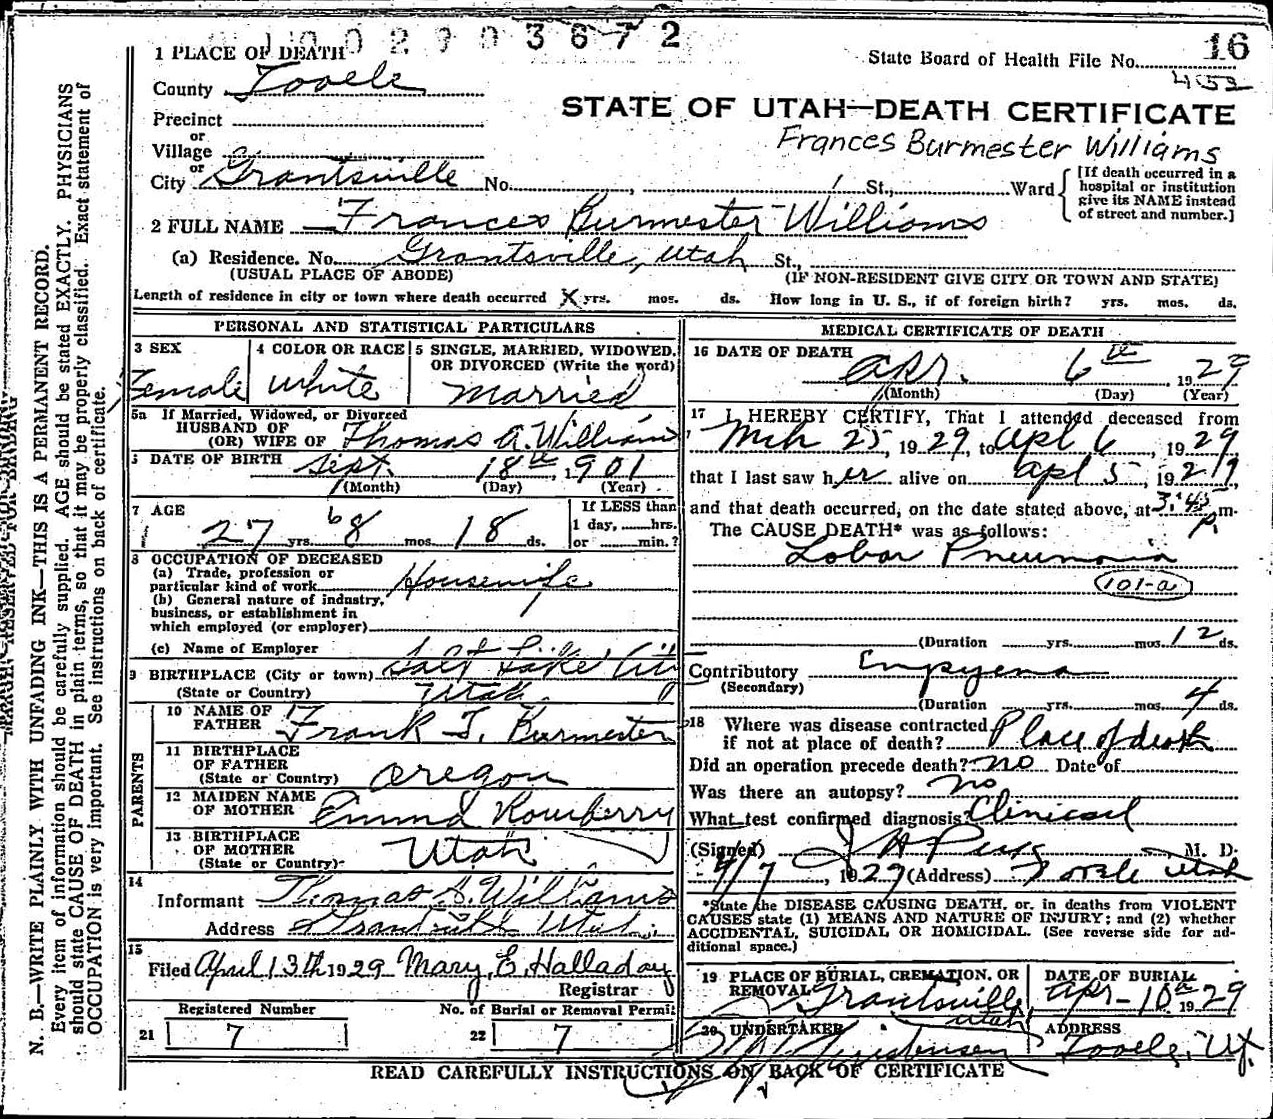 3 6 7 2
16
1 PLACE OF DEATH
State Board of Health File No.
452
County Tooele
STATE OF UTAH—DEATH CERTIFICATE
Precinct
Frances Burmester Williams
or
Village
or
City Grantsville No. , St., Ward
[If death occurred in a
hospital or institution
give its NAME instead
of street and number.]
2 FULL NAME Frances Burmester Williams
(a) Residence. No. Grantsville, Utah St.,
(USUAL PLACE OF ABODE) (IF NON-RESIDENT GIVE CITY OR TOWN AND STATE)
Length of residence in city or town where death occurred X yrs. mos. ds. How long in U. S., if of foreign birth? yrs. mos. ds.
PERSONAL AND STATISTICAL PARTICULARS
3 SEX
Female
4 COLOR OR RACE
White
5 SINGLE, MARRIED, WIDOWED,
OR DIVORCED (Write the word)
Married
5a If Married, Widowed, or Divorced
HUSBAND OF
(OR) WIFE OF Thomas A. Williams
DATE OF BIRTH Sept. 18th, 1901
(Month) (Day) (Year)
7 AGE
27 yrs. 6 8 mos. 18 ds.
If LESS than
1 day, hrs.
or min.?
8 OCCUPATION OF DECEASED
(a) Trade, profession or
particular kind of work Housewife
(b) General nature of industry,
business, or establishment in
which employed (or employer)
(c) Name of Employer
9 BIRTHPLACE (City or town) Salt Lake City
(State or Country) Utah
PARENTS
10 NAME OF
FATHER Frank T. Burmester
11 BIRTHPLACE
OF FATHER
(State or Country) Oregon
12 MAIDEN NAME
OF MOTHER Emma Rowberry
13 BIRTHPLACE
OF MOTHER
(State or Country) Utah
14
Informant Thomas A. Williams
Address Grantsville Utah
15
Filed April 13th 1929 Mary E. Halladay
Registrar
Registered Number
21 7
No. of Burial or Removal Permit
22 7
MEDICAL CERTIFICATE OF DEATH
16 DATE OF DEATH
Apr. 6th, 1929
(Month) (Day) (Year)
17 I HEREBY CERTIFY, That I attended deceased from
Mch 25, 1929, to Apl 6, 1929
that I last saw her alive on Apl 5, 1929
and that death occurred, on the date stated above, at 3:45 p. m.
The CAUSE DEATH* was as follows:
Lobar Pneumonia
101-a
(Duration yrs. mos. 12 ds.
Contributory Empyema
(Secondary)
(Duration yrs. mos. 4 ds.
18 Where was disease contracted
if not at place of death? Place of death
Did an operation precede death? no Date of
Was there an autopsy? no
What test confirmed diagnosis? Clinical
(Signed) J H Peck M. D.
4/7, 1929 (Address) Tooele Utah
*State the DISEASE CAUSING DEATH, or, in deaths from VIOLENT
CAUSES state (1) MEANS AND NATURE OF INJURY; and (2) whether
ACCIDENTAL, SUICIDAL OR HOMICIDAL. (See reverse side for ad-
ditional space.)
19 PLACE OF BURIAL, CREMATION, OR
REMOVAL Grantsville, Utah
DATE OF BURIAL
Apr-10th 1929
20 UNDERTAKER
ADDRESS
Tooele, Ut.
READ CAREFULLY INSTRUCTIONS ON BACK OF CERTIFICATE
N. B.—WRITE PLAINLY WITH UNFADING INK—THIS IS A PERMANENT RECORD.
Every item of information should be carefully supplied. AGE should be stated EXACTLY. PHYSICIANS
should state CAUSE OF DEATH in plain terms, so that it may be properly classified. Exact statement of
OCCUPATION is very important. See instructions on back of certificate.